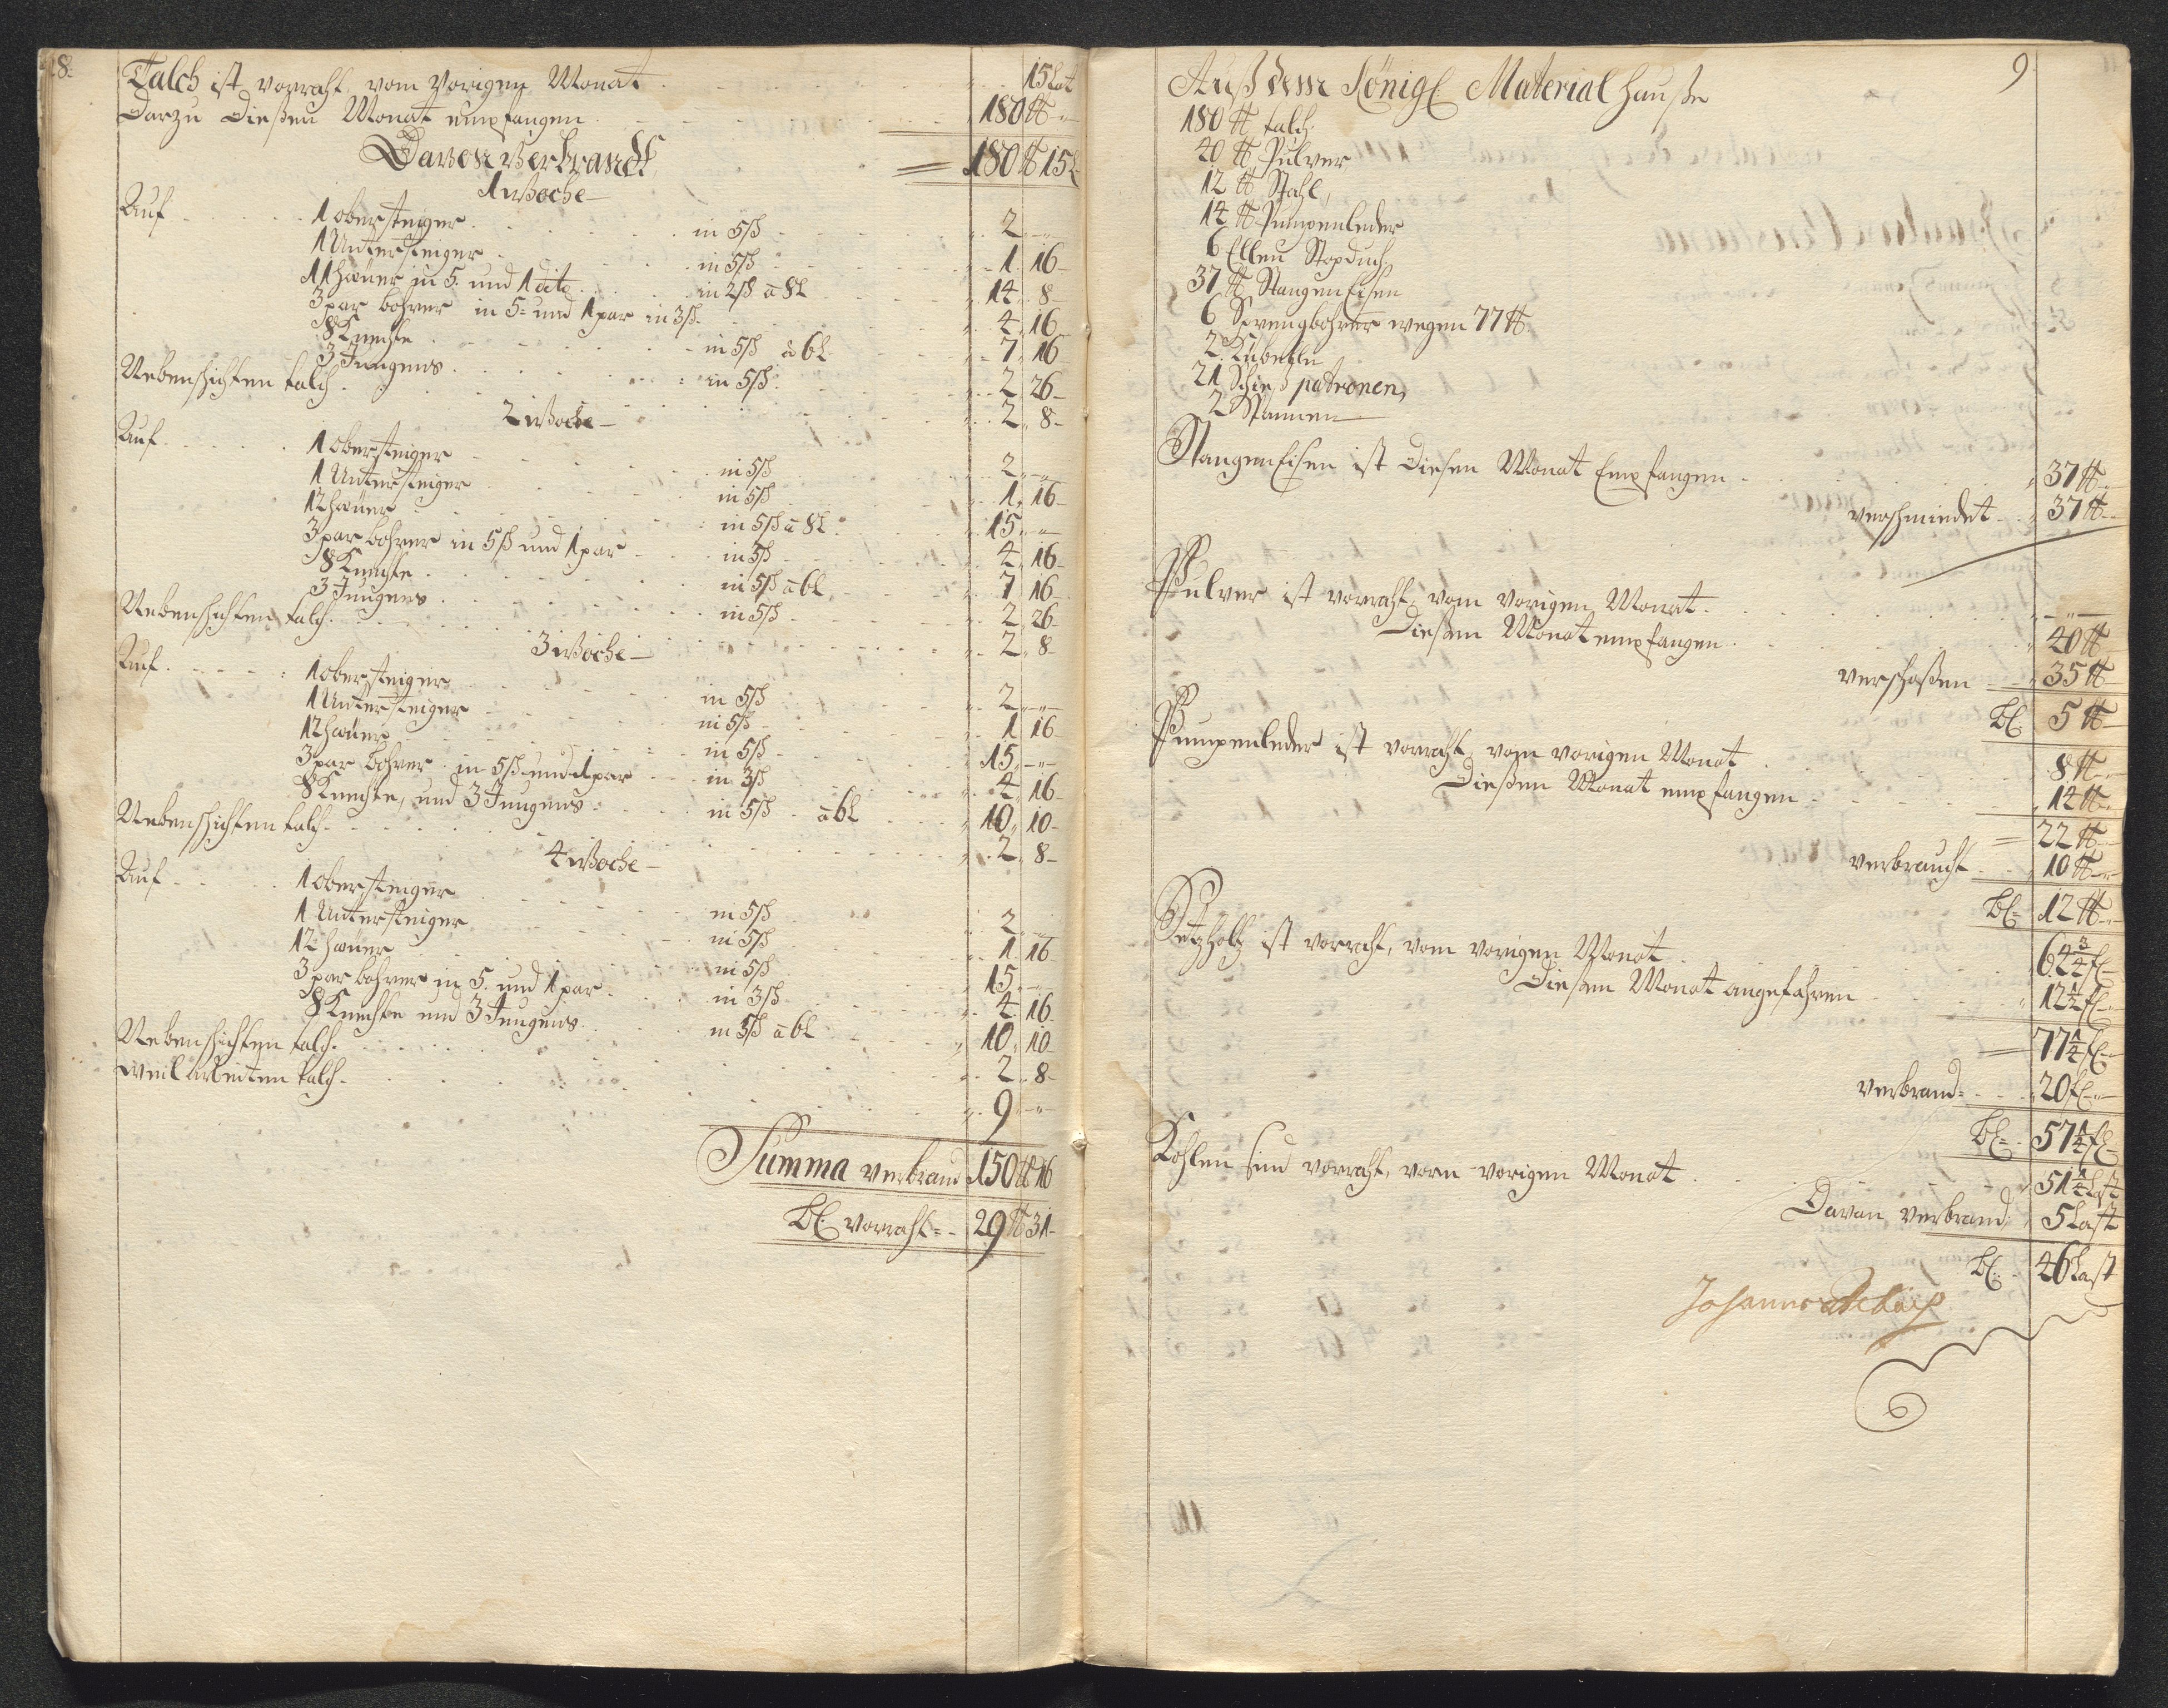 8.
Talch ist vorraht vom Vorigen Monat 15 Lot
Darzu Dießen Monat empfangen 180 ℔ -"-
Davon verbrandt = 180 ℔ 15 L
1 Woche
Auf 1 obersteiger in 5ß 2 "-
1 Untersteiger in 5ß 1 16
11 Hauer in 5. und 1 dito in 2ß a 8L 14 8
3 par bohrer in 5= und 1 par in 3ß 4 16
8 Knechte in 5ß a 6L 7 16
3 Jungens in 5ß 2 26
Nebenschichten talch 2 8
2 Woche
Auf 1 obersteiger in 5ß 2 "-
1 Untersteiger in 5ß 1 16
12 Hauer in 5ß a 8L 15 "-
3 par bohrer in 5ß und 1 par in 3ß 4 16
8 Knechte in 5ß a 6L 7 16
3 Jungens in 5ß 2 26
Nebenschichten talch 2 8
3 Woche
Auf 1 obersteiger in 5ß 2 "-
1 Untersteiger in 5ß 1 16
12 Hauer in 5ß 15 "-
3 par bohrer in 5ß und 1 par in 3ß 4 16
8 Knechte, und 3 Jungens in 5ß a 6L 10 10
Nebenschichten talch 2 8
4 Woche
Auf 1 obersteiger in 5ß 2 "-
1 Untersteiger in 5ß 1 16
12 Hauer in 5ß 15 "-
3 par bohrer in 5. und 1 par in 3ß 4 16
8 Knechte und 3 Jungens in 5ß a 6L 10 10
Nebenschichten talch 2 8
weil arbeiten talch 9 "-
Summa verbrand 150 ℔ 16
Bl. vorraht 29 ℔ 31
9.
Auß dem Königl. Material Hauße
180 ℔ talch
40 ℔ Pulver
12 ℔ Stahl,
14 ℔ Pumpenleder
6 Ellen Stopduch
37 ℔ Stangen Eisen
6 Sprengbohrer wegen 77 ℔
2 Kübeln
21 Schieß patronen,
2 Stannen
Stangen Eisen ist Diesen Monat Empfangen 37 ℔
verschmiedet 37 ℔
Pulver ist vorraht vom Vorigen Monat -"-
Dießen Monat empfangen 40 ℔
verschoßen 35 ℔
Bl. 5 ℔
Pumpenleder ist vorraht vom vorigen Monat 8 ℔
Dießen Monat empfangen 14 ℔
= 22 ℔
verbraucht 10 ℔
Bl= 12 ℔
Setzholtz ist vorraht, vom vorigen Monat 64 3/4 fl
Diesen Monat angefahren 12 1/2 fl
77 1/4 fl
verbrand= 20 fl
Bl= 57 1/4 fl
Kohlen sind vorraht, vom vorigen Monat 51 1/4 Last
Davan verbrand 5 Last
Bl. 46 Last
Johannes